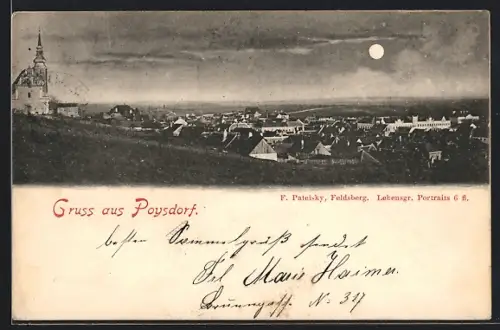 Gruss aus Poysdorf.
F. Patnisky, Feldsberg. Lebensgr. Portraits 6 fl.
besten Sammelgruß sendet
Frl Marie Haimer.
Brunngasse N= 317